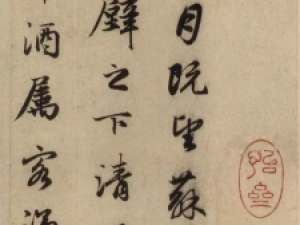 月既望蘇
壁之下清
酒屬客誦